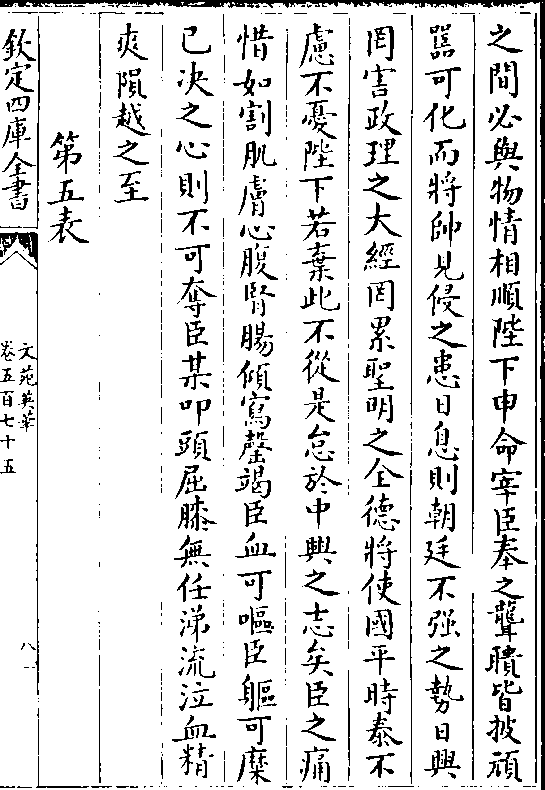 之間必與物情相順陛下申命宰臣奉之聾聵皆披頑
嚚可化而將帥見侵之患日息則朝廷不强之勢日興
罔害政理之大經罔累聖明之全德將使國平時泰不
慮不憂陛下若棄此不從是怠於中興之志矣臣之痛
惜如割肌膚心腹腎腸傾寫罄竭臣血可嘔臣軀可糜
已决之心則不可奪臣某叩頭屈膝無任涕流泣血精
爽隕越之至
第五表
欽定四庫全書
文苑英華
卷五百七十五
八